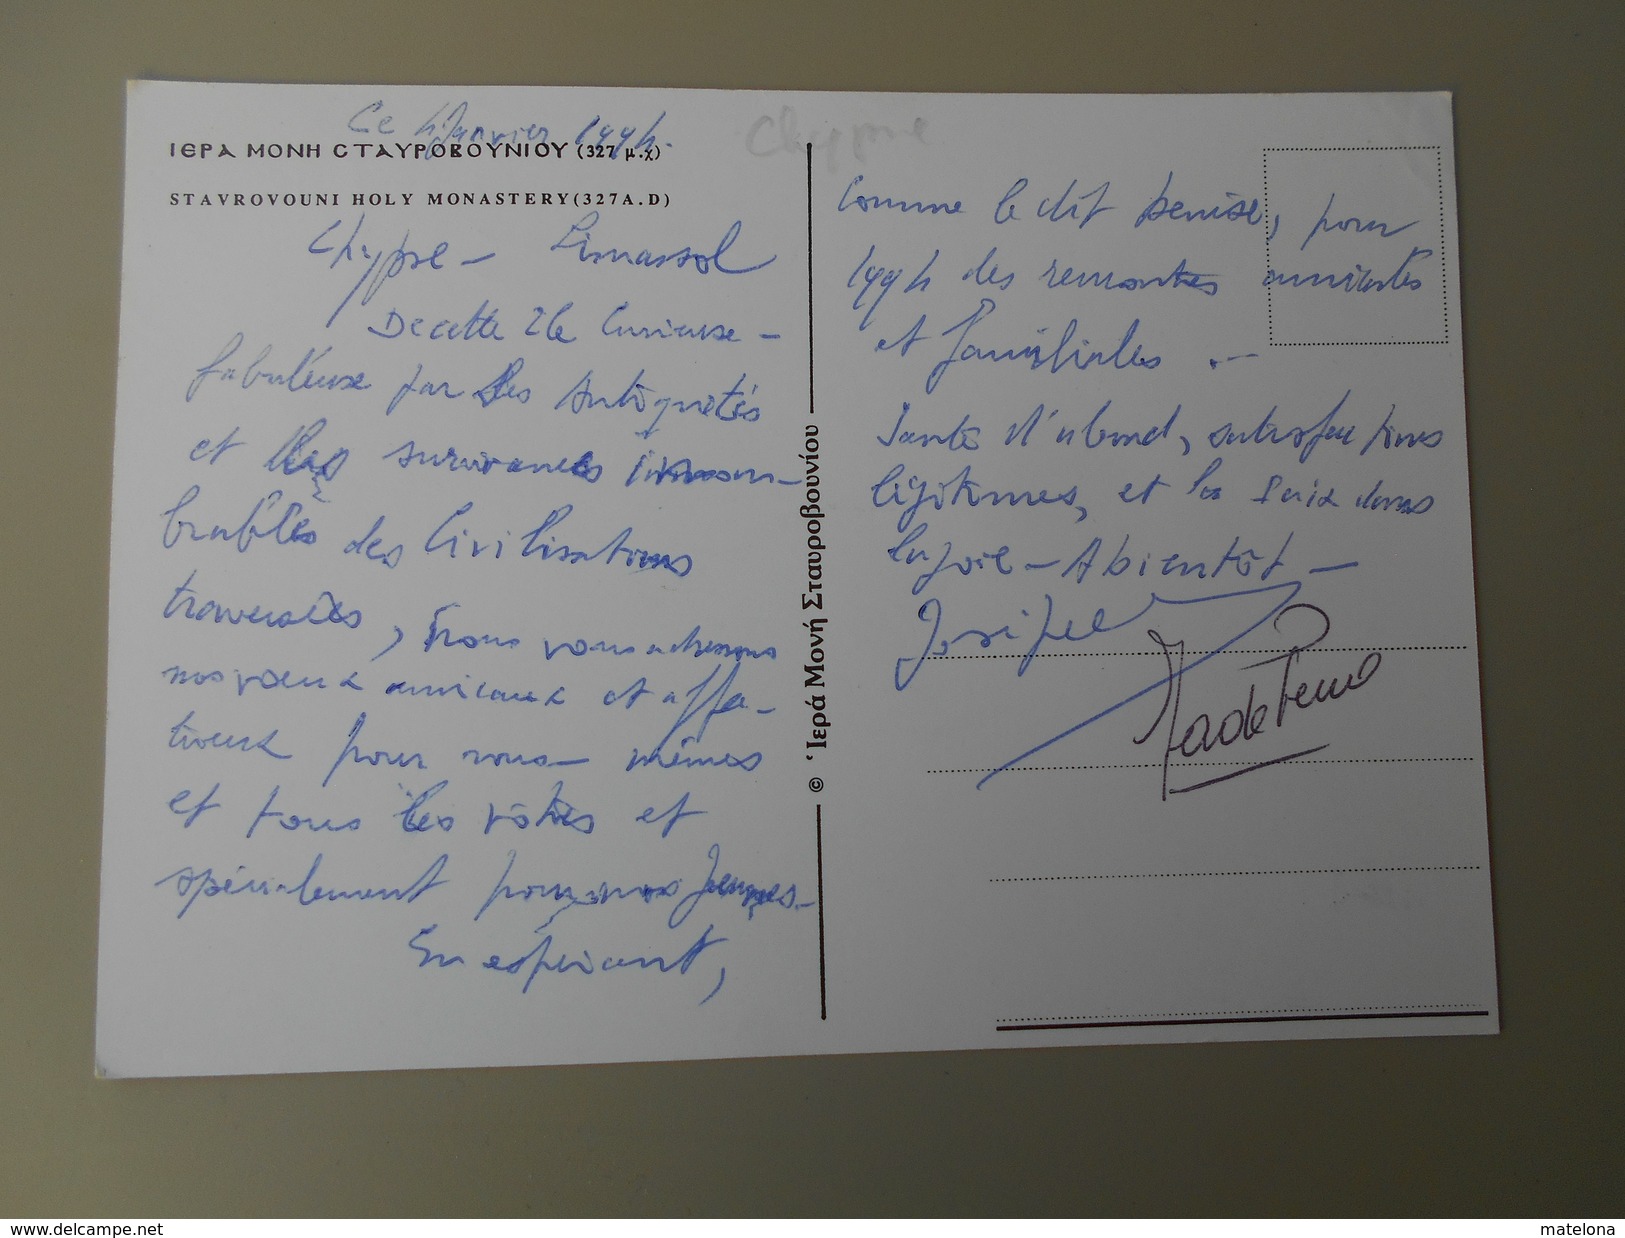 Ce 4 Janvier 1994.
ΙΕΡΑ ΜΟΝΗ ΣΤΑΥΡΟΒΟΥΝΙΟΥ (327 μ.χ)
STAVROVOUNI HOLY MONASTERY(327A.D)
Chypre - Limassol
De cette Ile Curieuse -
fabuleuse par les Antiquités
et les survivances innom-
brables des Civilisations
traversées, nous vous adressons
nos voeux amicaux et affec-
tueux pour vous-mêmes
et tous les vôtres et
spécialement pour nos Jeunes.
En espérant,
Chypre
Comme le dit Denise, pour
1994 des rencontres amicales
et familiales .-
Santé d'abord, satisfactions
légitimes, et la Paix dans
la Joie - A bientôt -
© Ἱερά Μονή Σταυροβουνίου
delcampe.net
matelona